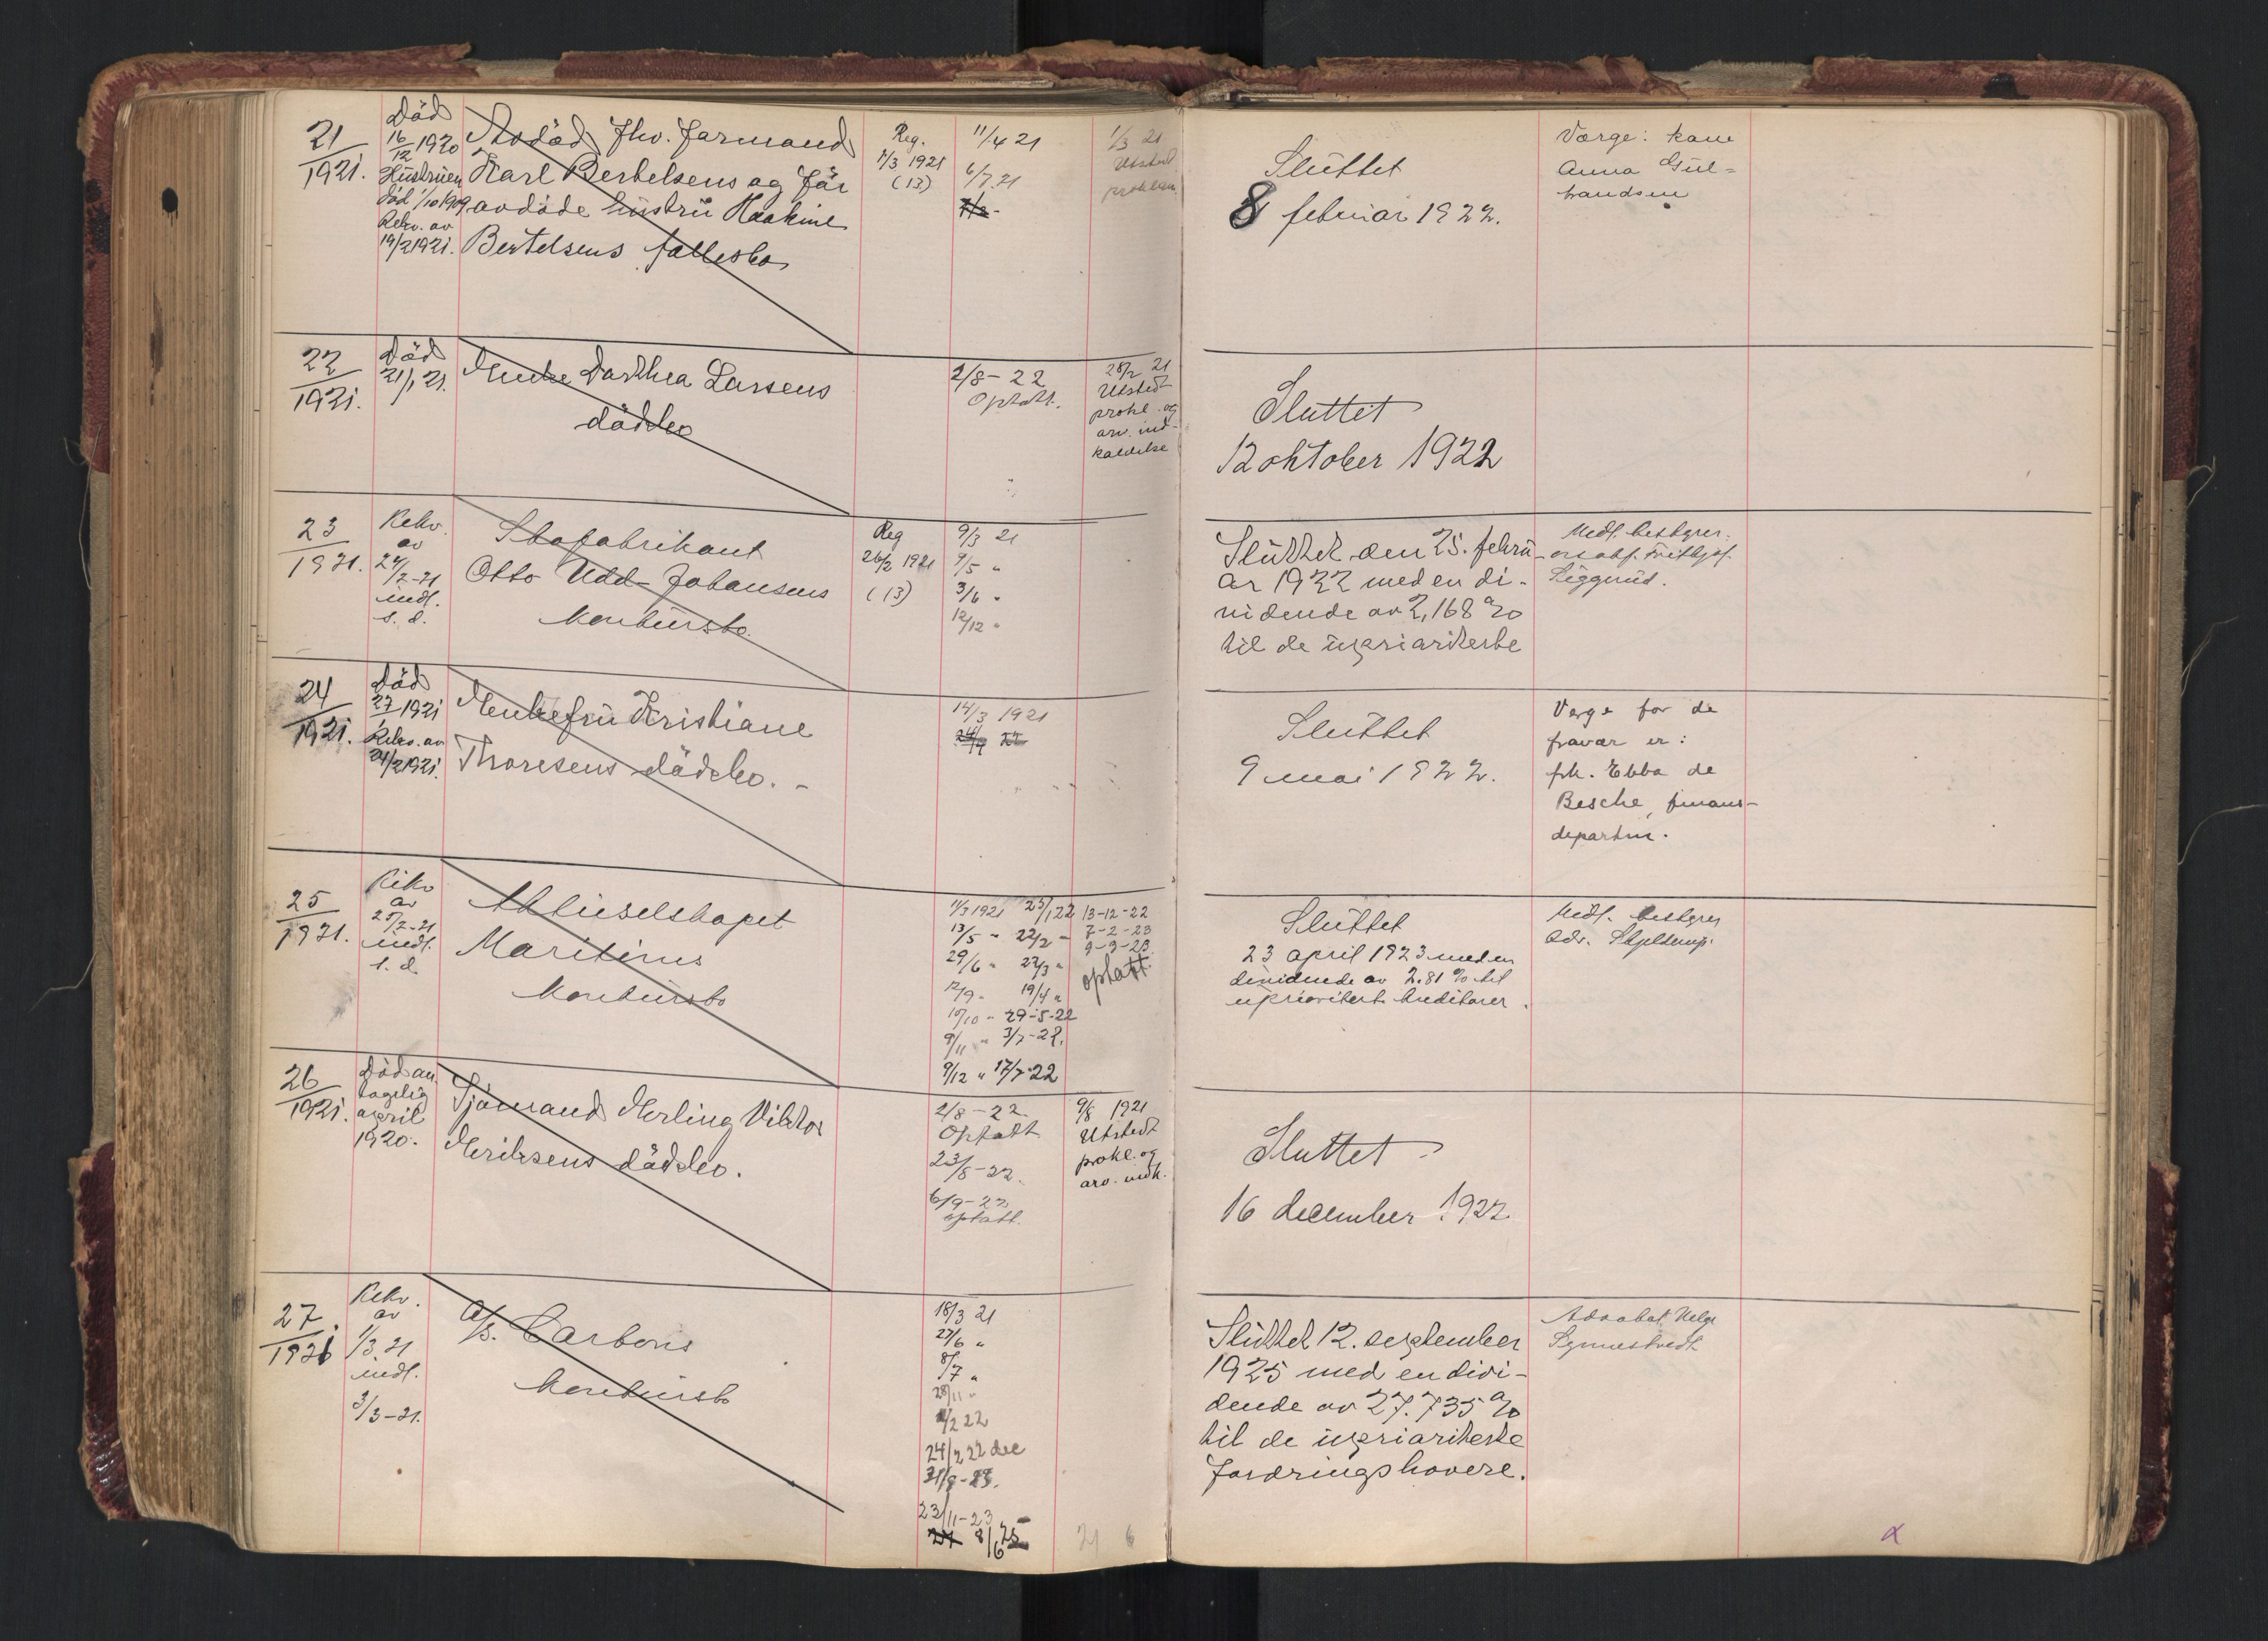 21
1921.
Död
16/12 1920
Hustruen
död 1/10 1909
Rekv. av
19/2 1921.
Avdöd fhv. formand
Karl Bertelsens og før
avdöde hustru Haakine
Bertelsens fællesbo
Reg.
1/3 1921
(13)
11/4 21
6/7.21
1/3 21
Utstedt
proklam
Sluttet
8 februar 1922.
Værge: kone
Anna Gul-
brandsen
22
1921.
Död
21/1 21.
Enke Darthea Larsens
dödsbo
2/8-22
Optatt.
28/2 21
Utstedt
prokl. og
arv. ind-
kaldelse
Sluttet
12 oktober 1922
23
1921.
Rekv.
av
24/2-21
indl.
s. d.
Skofabrikant
Otto Udd-Johansens
konkursbo.
Reg
26/2 1921
(13)
9/3 21
9/5 "
3/6 "
12/12 "
Sluttet den 25. febru-
ar 1922 med en di-
vidende av 2,168 %
til de uprioriterte
Medl. bestyrer:
Siggerud.
24
1921.
Död
27/1 1921
Rekv. av
24/2 1921.
Enkefru Kristiane
Thoresens dödsbo. -
14/3 1921
Sluttet
9 mai 1922.
Verge for de
fravær er:
frk. Ebba de
Besche, finans-
departm.
25
1921.
Rekv
av
25/2-21
indl.
s. d.
Aktieselskapet
Maritims
konkursbo
11/3 1921 25/1 22 13-12-22
13/5 " 22/2 - 7-2-23
29/6 " 27/3 " 9-3-23
12/9 - 19/4 " optatt.
10/10 " 29-5-22
9/11 " 3/7-22.
9/12 " 17/7-22
Sluttet
23 april 1923 med en
dividende av 2.81 % til
uprioritert kreditorer.
Medl. bestyrer
adv.
26
1921.
Död an
tagelig
april
1920.
Sjömand Erling Viktor
Eriksens dödsbo.
2/8-22
Optatt
23/8-22.
6/9-22
optatt.
9/8 1921
Utstedt
prokl. og
arv. indk.
Sluttet
16 december 1922
27
1921
Rekv.
av
1/3 21
indl.
3/3-21.
A/s. Carbons
konkursbo
18/3 21
27/6 "
8/7 "
28/11 "
1/2 22
24/2 22 dec
31/8-23.
23/11-23
8/6 25
21 6
Sluttet 12. september
1925 med en divi-
dende av 27.735 %
til de uprioriterte
fordringshavere.
Advokat Helge
Synnestvedt
α